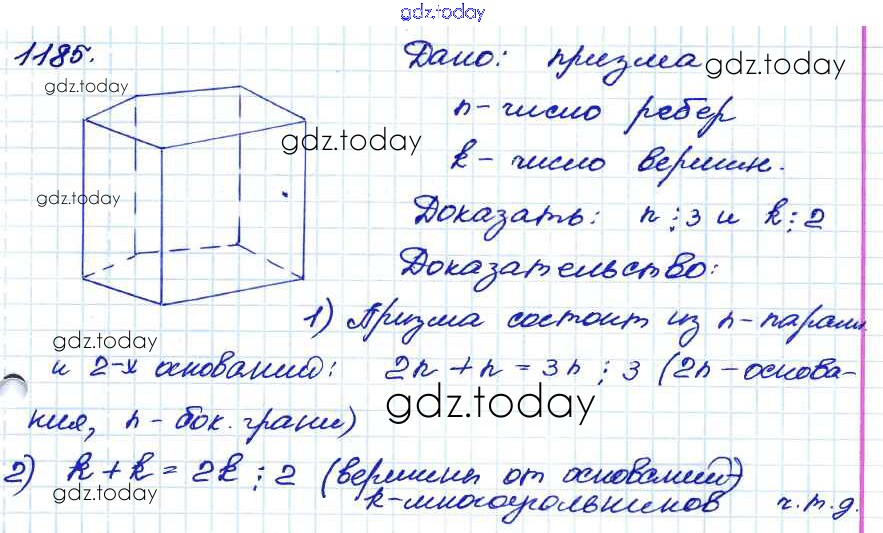 gdz.today
1185.
Дано: призма gdz.today
gdz.today
n - число ребер
gdz.today
k - число вершин.
gdz.today
Доказать: n ⋮ 3 и k ⋮ 2
Доказательство:
1) Призма состоит из n - парал.
gdz.today
и 2-х оснований: 2n + n = 3n ⋮ 3 (2n - основа-
ния, n - бок. грани)
gdz.today
2) k + k = 2k ⋮ 2 (вершины от оснований)
gdz.today
k-многоугольников ч.т.д.